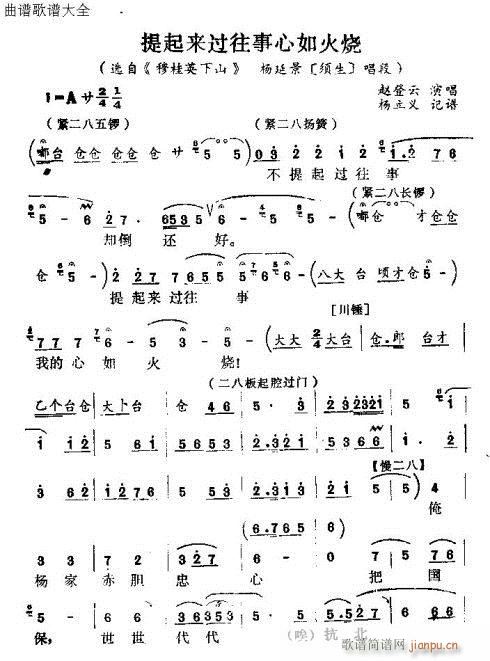 曲谱歌谱大全
提起来过往事心如火烧
(选自《穆桂英下山》 杨廷景〔须生〕唱段)
1=A サ 2/4 1/4
赵登云 演唱
杨立义 记谱
(紧二八五锣) (紧二八扬簧)
(嘟台 仓 仓 仓 仓 サ 5 5) 0 3 2 2 1 2 1.2 7 6
不 提 起 过 往 事
(紧二八长锣)
5 - 6 2 7. 6535 5 - 6 - (嘟仓 - 才仓仓
却倒 还 好。
仓 5 - ) 2 2 7 7 6 5 5 5 6 - (八大 台 顷才仓 5 - )
提起来过往 事
[川锤]
7 7 7 7 6 - 5 3 - 5 - (大大 2/4 大台 仓.郎 台才
我的心 如 火 烧!
(二八板起腔过门)
乙个台仓 大卜台 仓 4 6 5 · 3 2 3 2321 5 1
1 1 2 5 6 1 5 6 5 4 3 5 2.321 5 3 6 5 1 1 2
【慢二八】
3 6 2 1 2 7 6 5 6 5 5 2.321 7 6 5 5) 4
俺
(6.765)
3 3 2 3 2 7 6 - 0 7 5 7 6
杨 家 赤 胆 忠 心 把 国
5 · 5 6 3 6353 5 - 5.5 2 7
保, 世 世 代 代 (唉) 抗 北
歌谱简谱网
jianpu.cn